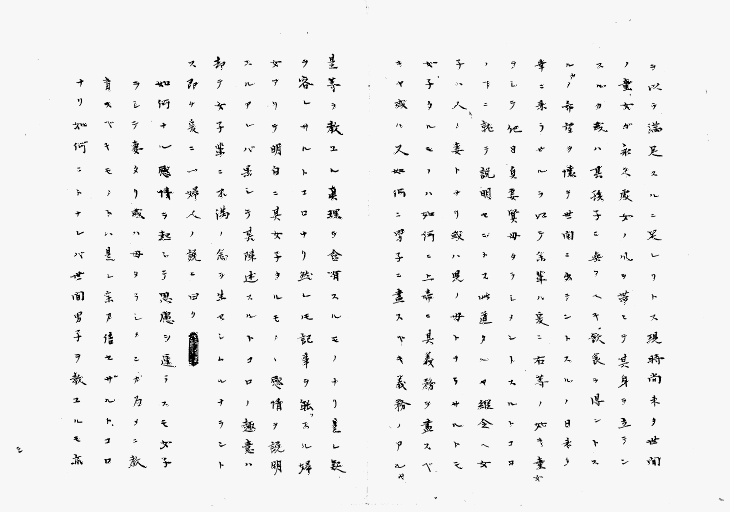 ヲ以テ満足スルニ足レリトス現時尚未タ世間
ノ童女ガ永久處女ノ風ヲ帯ヒテ其身ヲ立テン
スルカ或ハ其後チニ與フヘキ飲食ヲ得ントス
ルノ希望ヲ懐キ世間ニ出テントスルノ日来リ
幸ニ来ラザルヲ以テ余輩ハ爰ニ右等ノ如キ童女
ヲシテ他日良妻賢母タラシメントスルトコロ
ノトニ就テ説明セントス此道タルヤ縦令ヘ女
子ハ人ノ妻トナリ或ハ児ノ母トナラサルトモ
女子タルモノハ如何ニ上帝ニ其義務ヲ盡スベ
キヤ或ハ又如何ニ男子ニ盡スヘキ義務ノアルヤ
是等ヲ教ユル真理ヲ含有スルモノナリ是レ疑
ヲ容レサルトコロナリ然レモ記事ヲ能スル婦
女アリテ明白ニ其女子タルモノヽ感情ヲ説明
スルアレバ果シテ其陳述スルトコロノ趣意ハ
却テ女子輩ニ不満ノ念ヲ生セシムルナラント
ス即チ爰ニ一婦人ノ説ニ曰ク
如何ナル感情ヲ起シテ思慮シ運ラスモ女子
ヲシテ妻タリ或ハ母タラシメンガ為メニ教
育スベキモノトハ是レ余ガ信セザルトコロ
ナリ如何ニトナレバ世間男子ヲ教ユルモ亦